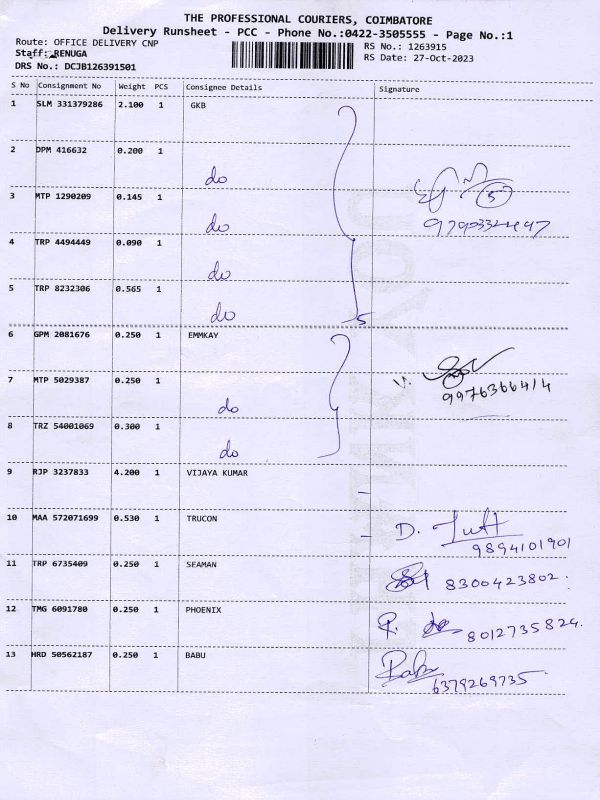 THE PROFESSIONAL COURIERS, COIMBATORE
Delivery Runsheet - PCC - Phone No.:0422-3505555 - Page No.:1
Route: OFFICE DELIVERY CNP
RS No.: 1263915
Staff: RENUGA
RS Date: 27-Oct-2023
DRS No.: DCJB126391501
S No Consignment No Weight PCS Consignee Details Signature
1 SLM 331379286 2.100 1 GKB
2 DPM 416632 0.200 1
do
3 MTP 1290209 0.145 1
do
4 TRP 4494449 0.090 1
do
5 TRP 8232306 0.565 1
do 5
6 GPM 2081676 0.250 1 EMMKAY
7 MTP 5029387 0.250 1
do 9976366414
8 TRZ 54001069 0.300 1
do
9 RJP 3237833 4.200 1 VIJAYA KUMAR -
10 MAA 572071699 0.530 1 TRUCON - D.
9894101901
11 TRP 6735409 0.250 1 SEAMAN 8300423802.
12 TMG 6091780 0.250 1 PHOENIX 8012735824.
13 HRD 50562187 0.250 1 BABU Babu
6379269735